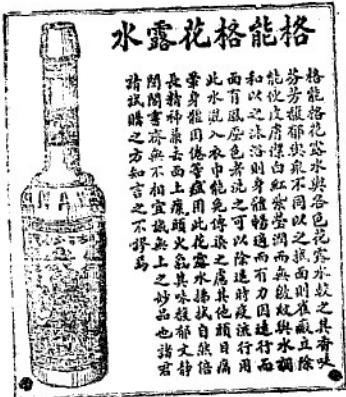 格能格花露水
格能格花露水與各色花露水較之其香味
芬芳馥郁與眾不同以之抹面則雀斑立除
能使皮膚潔白紅紫瑩潤而無皺紋與水調
和以之沐浴則身體暢適而有力因遠行而
面有風塵色者洗之可以除退時疫流行用
此水洒入衣巾能免傳染之虞其他頭目痛
暈身體困倦等症用此花露水揩拭自然倍
長精神兼去面上瘰頭火氣其味馥郁文靜
閨閣書齋無不相宜誠無上之妙品也諸君
請試購之方知言之不謬焉